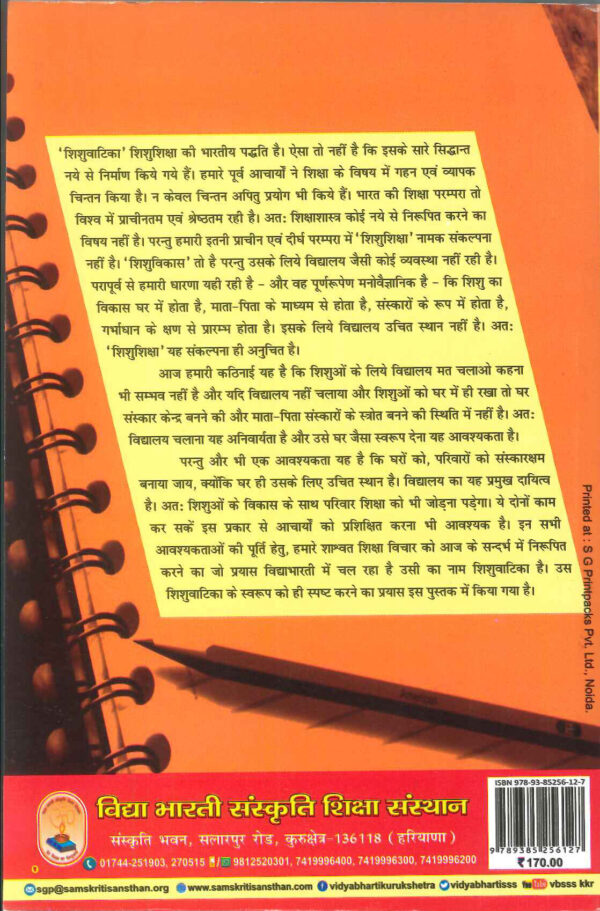 ‘शिशुवाटिका’ शिशुशिक्षा की भारतीय पद्धति है। ऐसा तो नहीं है कि इसके सारे सिद्धान्त
नये से निर्माण किये गये हैं। हमारे पूर्व आचार्यों ने शिक्षा के विषय में गहन एवं व्यापक
चिन्तन किया है। न केवल चिन्तन अपितु प्रयोग भी किये हैं। भारत की शिक्षा परम्परा तो
विश्व में प्राचीनतम एवं श्रेष्ठतम रही है। अतः शिक्षाशास्त्र कोई नये से निरूपित करने का
विषय नहीं है। परन्तु हमारी इतनी प्राचीन एवं दीर्घ परम्परा में ‘शिशुशिक्षा’ नामक संकल्पना
नहीं है। ‘शिशुविकास’ तो है परन्तु उसके लिये विद्यालय जैसी कोई व्यवस्था नहीं रही है।
परापूर्व से हमारी धारणा यही रही है – और वह पूर्णरूपेण मनोवैज्ञानिक है – कि शिशु का
विकास घर में होता है, माता-पिता के माध्यम से होता है, संस्कारों के रूप में होता है,
गर्भाधान के क्षण से प्रारम्भ होता है। इसके लिये विद्यालय उचित स्थान नहीं है। अतः
‘शिशुशिक्षा’ यह संकल्पना ही अनुचित है।
आज हमारी कठिनाई यह है कि शिशुओं के लिये विद्यालय मत चलाओ कहना
भी सम्भव नहीं है और यदि विद्यालय नहीं चलाया और शिशुओं को घर में ही रखा तो घर
संस्कार केन्द्र बनने की और माता-पिता संस्कारों के स्त्रोत बनने की स्थिति में नहीं है। अतः
विद्यालय चलाना यह अनिवार्यता है और उसे घर जैसा स्वरूप देना यह आवश्यकता है।
परन्तु और भी एक आवश्यकता यह है कि घरों को, परिवारों को संस्कारक्षम
बनाया जाय, क्योंकि घर ही उसके लिए उचित स्थान है। विद्यालय का यह प्रमुख दायित्व
है। अतः शिशुओं के विकास के साथ परिवार शिक्षा को भी जोड़ना पड़ेगा। ये दोनों काम
कर सकें इस प्रकार से आचार्यों को प्रशिक्षित करना भी आवश्यक है। इन सभी
आवश्यकताओं की पूर्ति हेतु, हमारे शाश्वत शिक्षा विचार को आज के सन्दर्भ में निरूपित
करने का जो प्रयास विद्याभारती में चल रहा है उसी का नाम शिशुवाटिका है। उस
शिशुवाटिका के स्वरूप को ही स्पष्ट करने का प्रयास इस पुस्तक में किया गया है।
Printed at : S G Printpacks Pvt. Ltd., Noida.
विद्या भारती संस्कृति शिक्षा संस्थान
संस्कृति भवन, सलारपुर रोड, कुरुक्षेत्र-136118 (हरियाणा)
01744-251903, 270515 / 9812520301, 7419996400, 7419996300, 7419996200
sgp@samskritisansthan.org www.samskritisansthan.com vidyabhartikurukshetra vidyabhartisss YouTube vbsss kkr
ISBN 978-93-85256-12-7
9789385256127
₹170.00